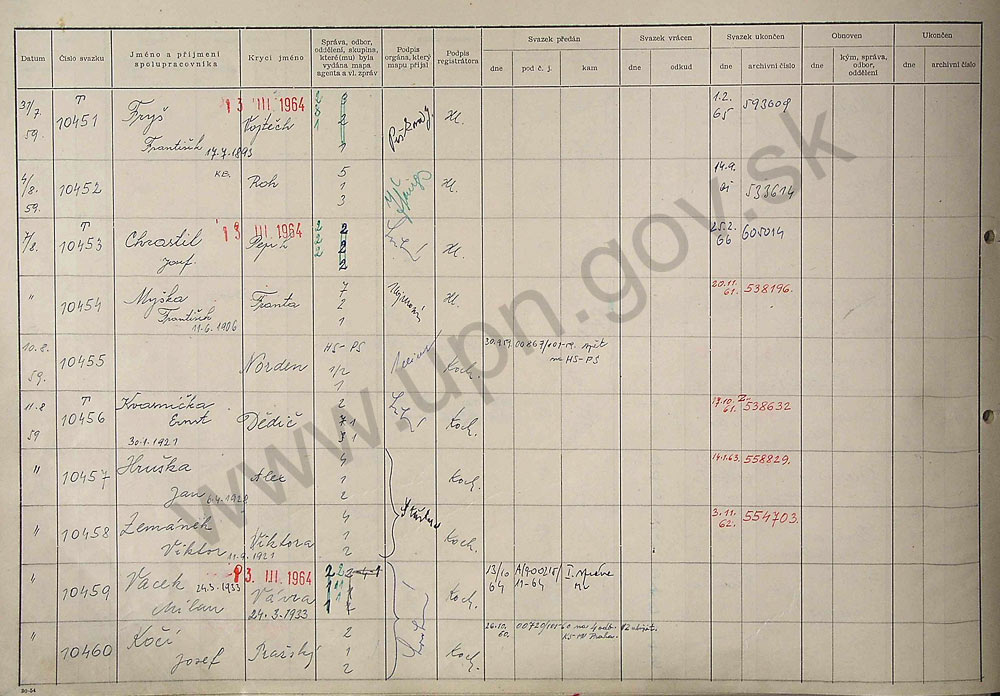 Datum
Číslo svazku
Jméno a příjmení spolupracovníka
Krycí jméno
Správa, odbor, oddělení, skupina, které(mu) byla vydána mapa agenta a vl. zpráv
Podpis orgána, který mapu přijal
Podpis registrátora
Svazek předán
dne
pod č. j.
kam
Svazek vrácen
dne
odkud
Svazek ukončen
dne
archivní číslo
Obnoven
dne
kým, správa, odbor, oddělení
Ukončen
dne
archivní číslo
31/7. 59. T 10451 Fryš František 17.7.1893 13 III 1964 Vojtěch 2 1 1.2. 65 593609
4/8. 59. 10452 KB. Roh 5 1 3 14.9. 533614
7/8. T 10453 Chrastil Josef. 13 III. 1964 Pepi 2 2 2 2 2 2 25.2. 66 605014
" 10454 Myška František 11.6.1906 Franta 7 2 1 20.11. 61. 538196.
10.8. 59. 10455 Norden HS-PS 1/2 1 Koch. 30.9.59. zpět na HS-PS
11.8 59 T 10456 Kvasnička Ernst 30.1.1921 Dědič 2 7 1 3 1 Koch. 17.10. 61. 538632
" 10457 Hruška Jan 6.4.1928 Alex 4 1 2 Koch. 14.1.63. 558829.
" 10458 Zemánek Viktor 11.9.1921 Viktora 4 1 2 Koch. 3.11. 62. 554703.
" 10459 Vacek 24.3.1933 Milan 3. III. 1964 Vávra 24.3.1933 2 2 Koch. 13/10 64 A/900215/ 11-64 I. správa
" 10460 Kočí Josef Pražský 2 1 2 Koch. 26.10. 60. na 4 odb. KS-MV Praha.
30-54
www.upn.gov.sk